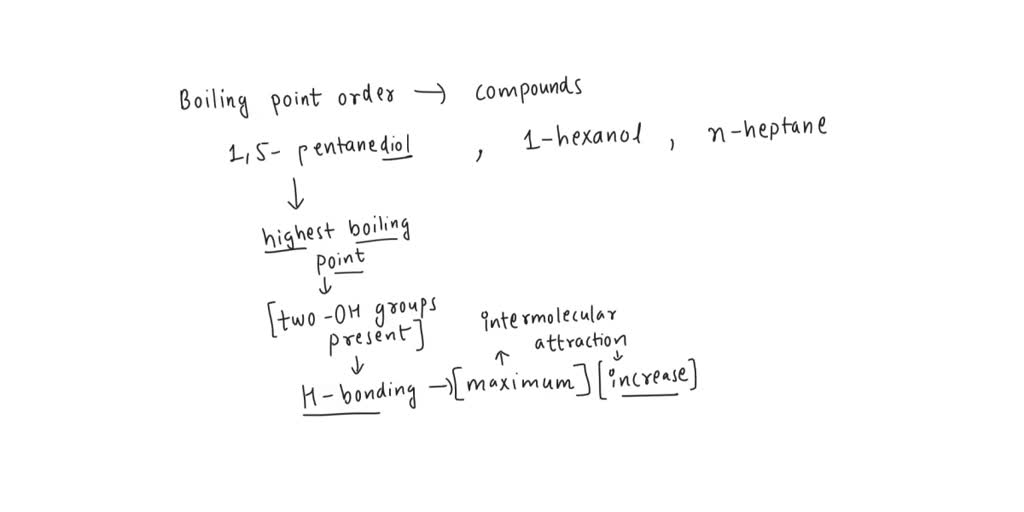 Boiling point order → compounds
1,5- pentanediol , 1-hexanol , n-heptane
↓
highest boiling
point
↓
[two -OH groups
present]
↓
intermolecular
attraction
↑ ↓
H-bonding →[maximum] [increase]